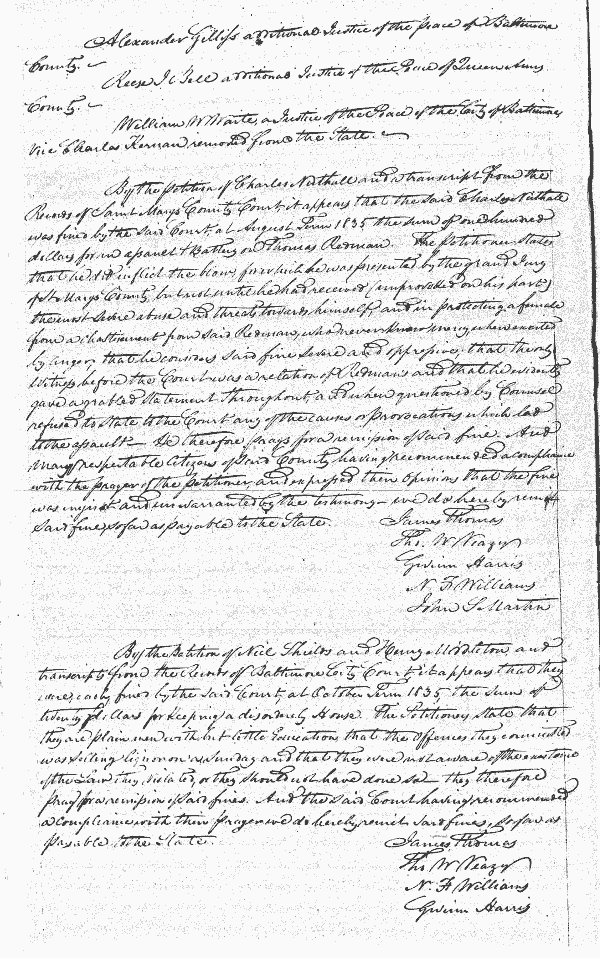 Alexander Gilliss additional Justice of the Peace of Baltimore
County.
Reese additional Justice of the Peace of Queen Anns
County.
William W Waite, a Justice of the Peace of the City of Baltimore
vice Charles Kernan removed from the State.
By the petition of Charles Nuthall and a transcript from the
Records of Saint Marys County Court it appears that the said Charles Nuthall
was fined by the said Court, at August Term 1835 the sum of one hundred
dollars for an assault & Battery on Thomas Redman. The petitioner states
that he did inflict the blow, for which he was presented by the grand Jury
of St Marys County, but not until he had received (unprovoked on his part)
the most severe abuse and threats towards himself, and in protecting a female
from a chastisement from said Redman, who never knows mercy when excited
by anger, that he considers said fine severe and oppressive, that the only
Witness before the Court was a relation of Redmans and that he evidently
gave a garbled Statement throughout, and when questioned by Counsel
refused to State to the Court any of the causes or provocations which led
to the assault — He therefore prays for a remission of said fine. And
many respectable Citizens of said County having recommended a compliance
with the prayer of the petitioner, and expressed their opinions that the fine
was unjust and unwarranted by the testimony — we do hereby remit
said fine, so far as payable to the State.
James Thomas
Tho. W Veazey
Gwinn Harris
N. F Williams
John S Martin
By the Petition of Neil Shields and Henry Middleton, and
transcripts from the Records of Baltimore City Court, it appears that they
were each fined by the said Court, at October Term 1835, the sums of
twenty dollars for keeping a disorderly House. The Petitioners state that
they are plain men with but little Education, that the offences they committed
was selling liquor on a Sunday, and that they were not aware of the existence
of the Law they violated, or they should not have done so — they therefore
pray for a remission of said fines. And the said Court having recommended
a compliance with their prayer we do hereby remit said fines, so far as
payable to the State.
James Thomas
Tho W Veazey
N. F Williams
Gwinn Harris